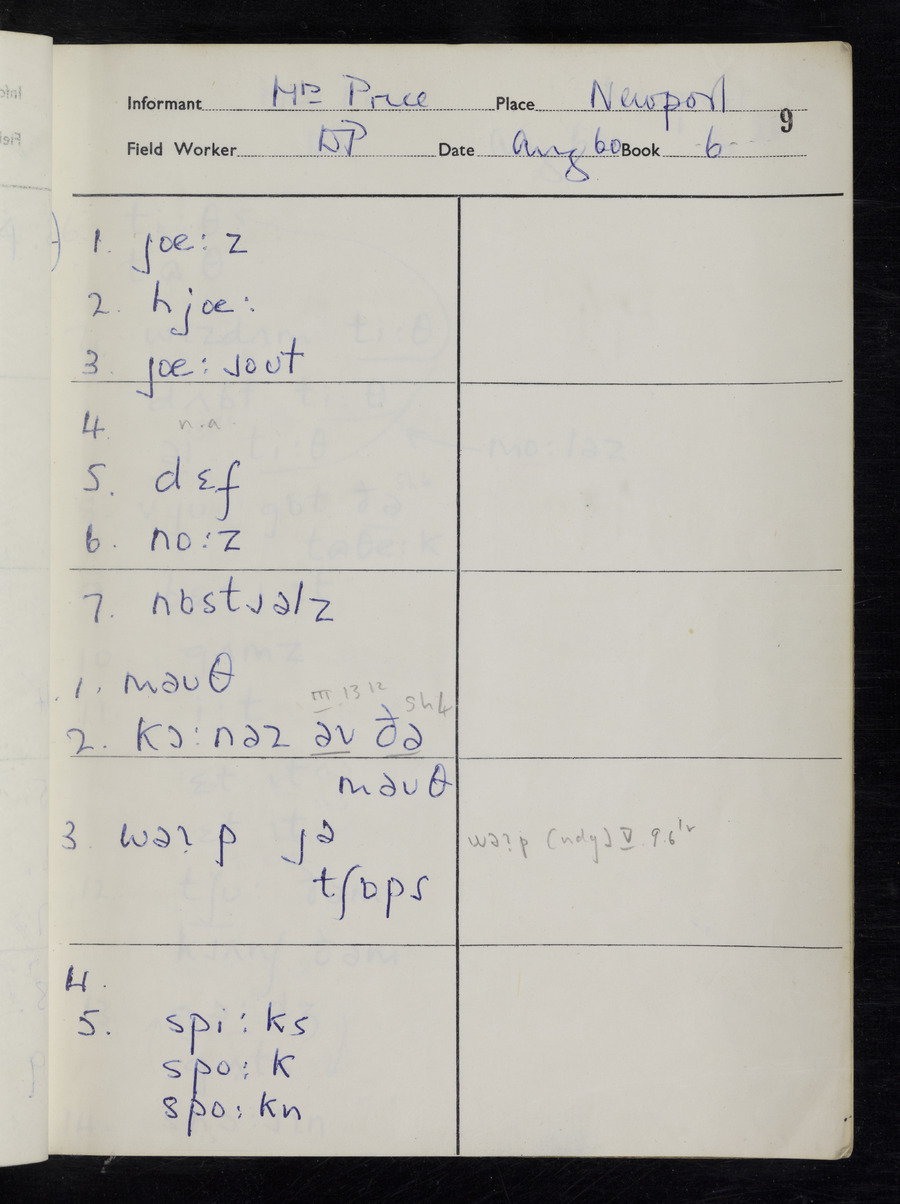 Informant Mrs Price Place Newport 9
Field Worker DP Date Aug 60 Book 6
1. jœ: z
2. hjœ:
3. jœ: ɹout
4. n.a.
5. dɛf
6. no:z
7. nɒstɹəlz
1. məuθ
III. 13 12 sh4
2. kɔ:nəz əv ðə
məuθ
3. wəɪp jə wəɪp (ndg) V. 9.6
tʃɒps
4.
5. spi:ks
spo:k
spo:kn